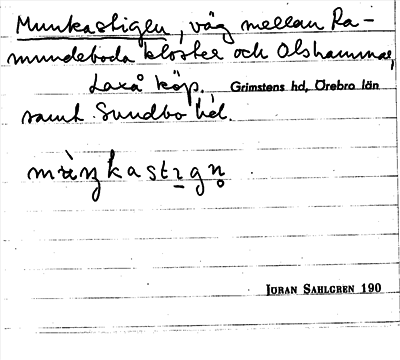 Munkastigen, väg mellan Ra-
mundeboda kloster och Olshammar,
Laxå köp. Grimstens hd, Örebro län
samt Sundbo hd.
Jöran Sahlgren 190